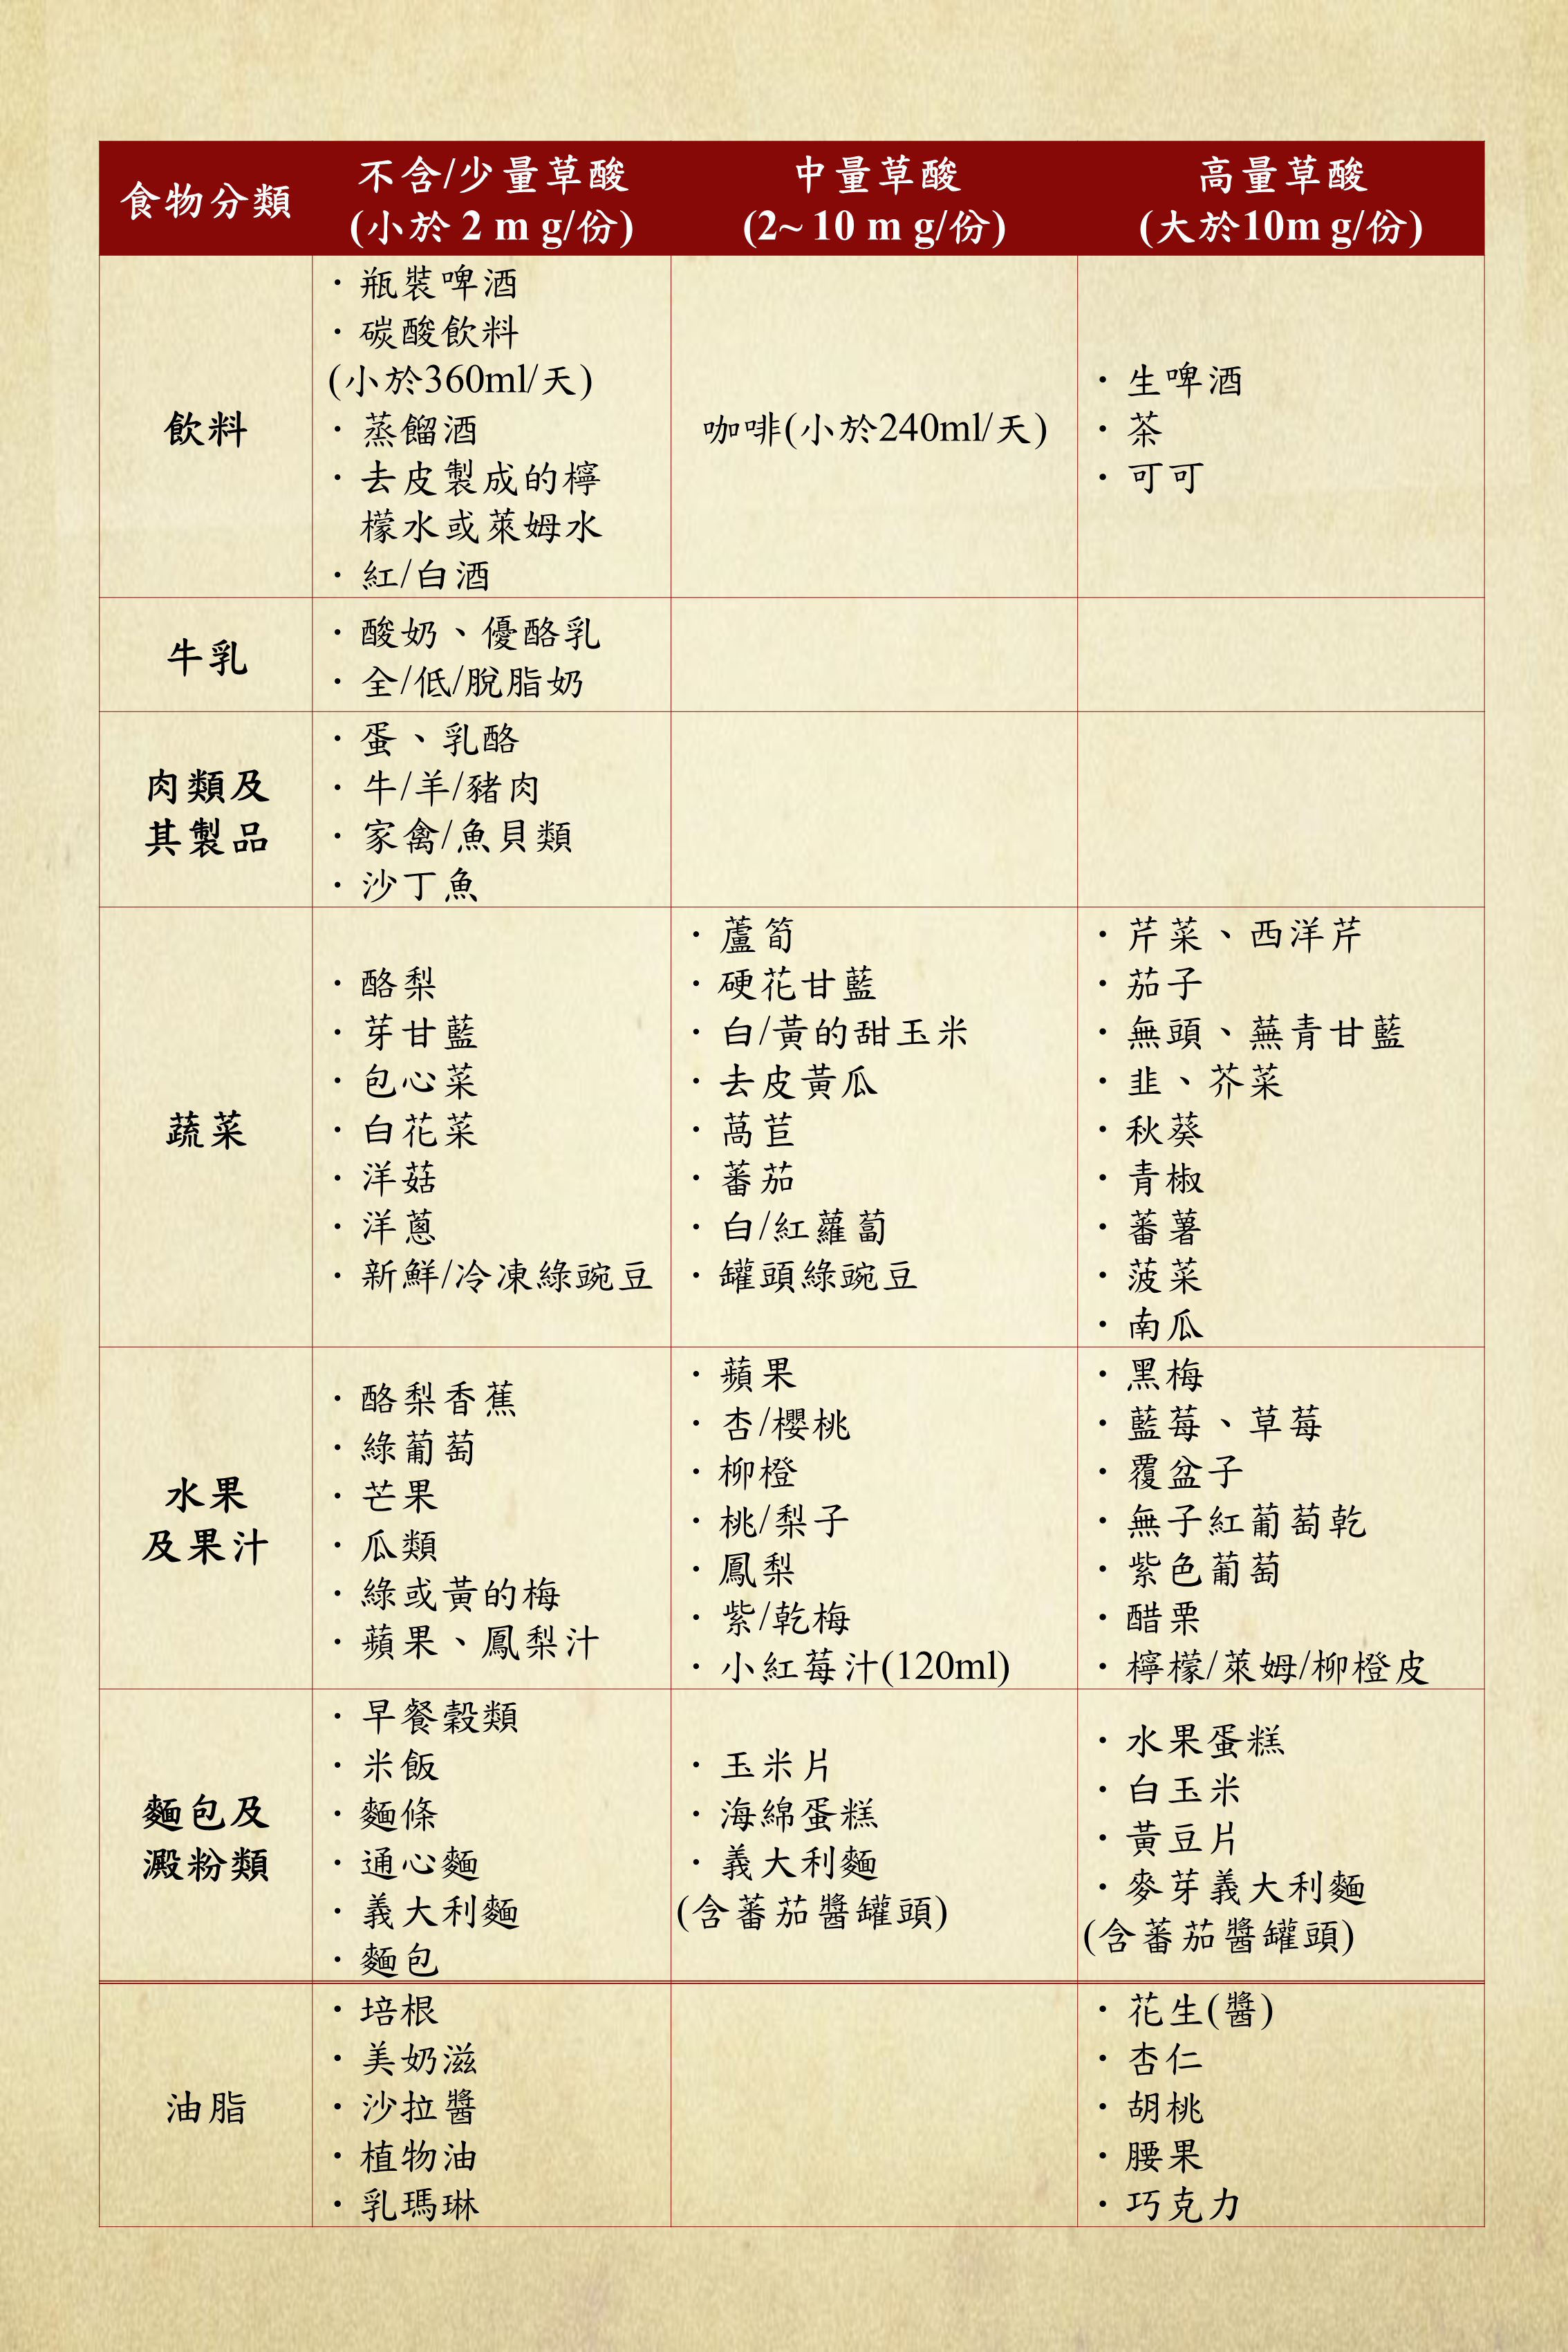 食物分類
不含/少量草酸
(小於 2 m g/份)
中量草酸
(2~ 10 m g/份)
高量草酸
(大於10m g/份)
飲料
・瓶裝啤酒
・碳酸飲料
(小於360ml/天)
・蒸餾酒
・去皮製成的檸
檬水或萊姆水
・紅/白酒
咖啡(小於240ml/天)
・生啤酒
・茶
・可可
牛乳
・酸奶、優酪乳
・全/低/脫脂奶
肉類及
其製品
・蛋、乳酪
・牛/羊/豬肉
・家禽/魚貝類
・沙丁魚
蔬菜
・酪梨
・芽甘藍
・包心菜
・白花菜
・洋菇
・洋蔥
・新鮮/冷凍綠豌豆
・蘆筍
・硬花甘藍
・白/黃的甜玉米
・去皮黃瓜
・萵苣
・蕃茄
・白/紅蘿蔔
・罐頭綠豌豆
・芹菜、西洋芹
・茄子
・無頭、蕪青甘藍
・韭、芥菜
・秋葵
・青椒
・蕃薯
・菠菜
・南瓜
水果
及果汁
・酪梨香蕉
・綠葡萄
・芒果
・瓜類
・綠或黃的梅
・蘋果、鳳梨汁
・蘋果
・杏/櫻桃
・柳橙
・桃/梨子
・鳳梨
・紫/乾梅
・小紅莓汁(120ml)
・黑梅
・藍莓、草莓
・覆盆子
・無子紅葡萄乾
・紫色葡萄
・醋栗
・檸檬/萊姆/柳橙皮
麵包及
澱粉類
・早餐穀類
・米飯
・麵條
・通心麵
・義大利麵
・麵包
・玉米片
・海綿蛋糕
・義大利麵
(含蕃茄醬罐頭)
・水果蛋糕
・白玉米
・黃豆片
・麥芽義大利麵
(含蕃茄醬罐頭)
油脂
・培根
・美奶滋
・沙拉醬
・植物油
・乳瑪琳
・花生(醬)
・杏仁
・胡桃
・腰果
・巧克力